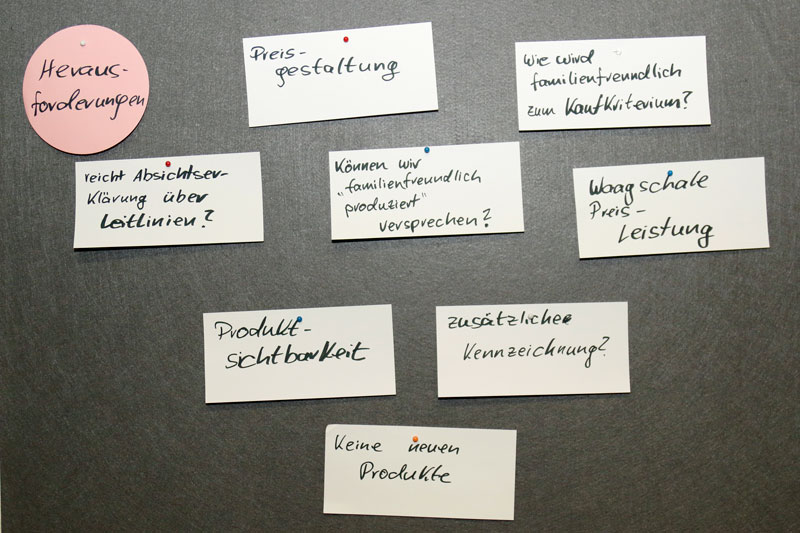 Heraus-
forderungen
Preis-
gestaltung
Wie wird
familienfreundlich
zum Kaufkriterium?
reicht Absichtser-
klärung über
Leitlinien?
Können wir
"familienfreundlich
produziert"
versprechen?
Waagschale
Preis-
Leistung
Produkt-
sichtbarkeit
zusätzliche
Kennzeichnung?
Keine neuen
Produkte